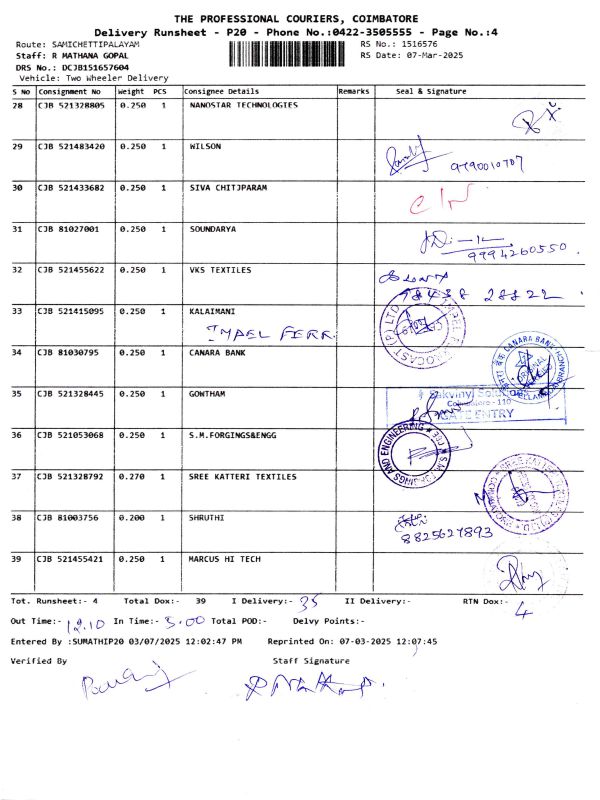 THE PROFESSIONAL COURIERS, COIMBATORE
Delivery Runsheet - P20 - Phone No.:0422-3505555 - Page No.:4
Route: SAMICHETTIPALAYAM RS No.: 1516576
Staff: R MATHANA GOPAL RS Date: 07-Mar-2025
DRS No.: DCJB151657604
Vehicle: Two Wheeler Delivery
S No Consignment No Weight PCS Consignee Details Remarks Seal & Signature
28 CJB 521328805 0.250 1 NANOSTAR TECHNOLOGIES
29 CJB 521483420 0.250 1 WILSON
9790010707
30 CJB 521433682 0.250 1 SIVA CHITJPARAM
31 CJB 81027001 0.250 1 SOUNDARYA
9994260550
32 CJB 521455622 0.250 1 VKS TEXTILES
98438 28822
33 CJB 521415095 0.250 1 KALAIMANI
IMPEL FERR
34 CJB 81030795 0.250 1 CANARA BANK
CANARA BANK
35 CJB 521328445 0.250 1 GOWTHAM
Coimbatore - 110
GATE ENTRY
36 CJB 521053068 0.250 1 S.M.FORGINGS&ENGG
S.M. FORGINGS AND ENGINEERING
37 CJB 521328792 0.270 1 SREE KATTERI TEXTILES
38 CJB 81003756 0.200 1 SHRUTHI
8825627893
39 CJB 521455421 0.250 1 MARCUS HI TECH
Tot. Runsheet:- 4 Total Dox:- 39 I Delivery:- 35 II Delivery:- RTN Dox:- 4
Out Time:- 12.10 In Time:- 3.00 Total POD:- Delvy Points:-
Entered By :SUMATHIP20 03/07/2025 12:02:47 PM Reprinted On: 07-03-2025 12:07:45
Verified By Staff Signature